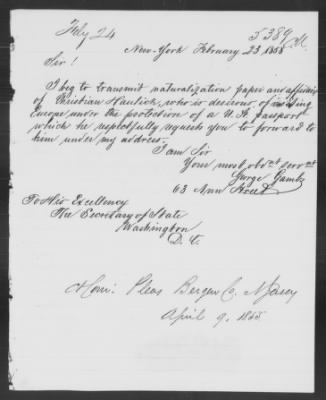 Feby 24
5389
New-York February 23 1858
Sir!
I beg to transmit naturalization paper and affidavit
of Christian who is desirous of
Europe under the protection of a U.S. passport
which he respectfully requests you to forward to
him under my address.
I am Sir
Your most obdt servant
George
63 Ann Street
To His Excellency
The Secretary of State
Washington
D. C.
Pleas Bergen Co. N Jersey
April 9. 1865